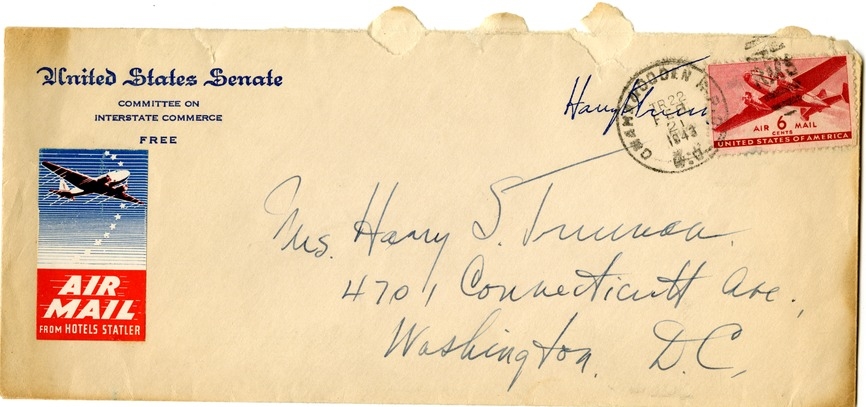 United States Senate
COMMITTEE ON
INTERSTATE COMMERCE
FREE
AIR
MAIL
FROM HOTELS STATLER
Harry Trum
TR 22
FEB
21
1943
AIR 6 MAIL
CENTS
UNITED STATES OF AMERICA
Mrs. Harry S. Truman.
4701 Connecticutt Ave.,
Washington, D.C.